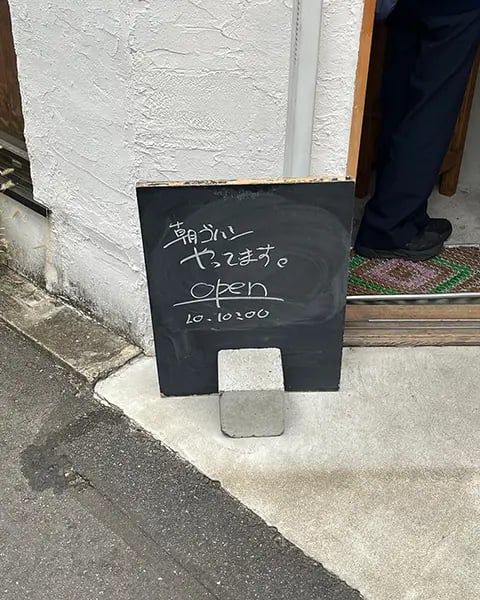 朝ゴハン
やってます。
open
10.10:00